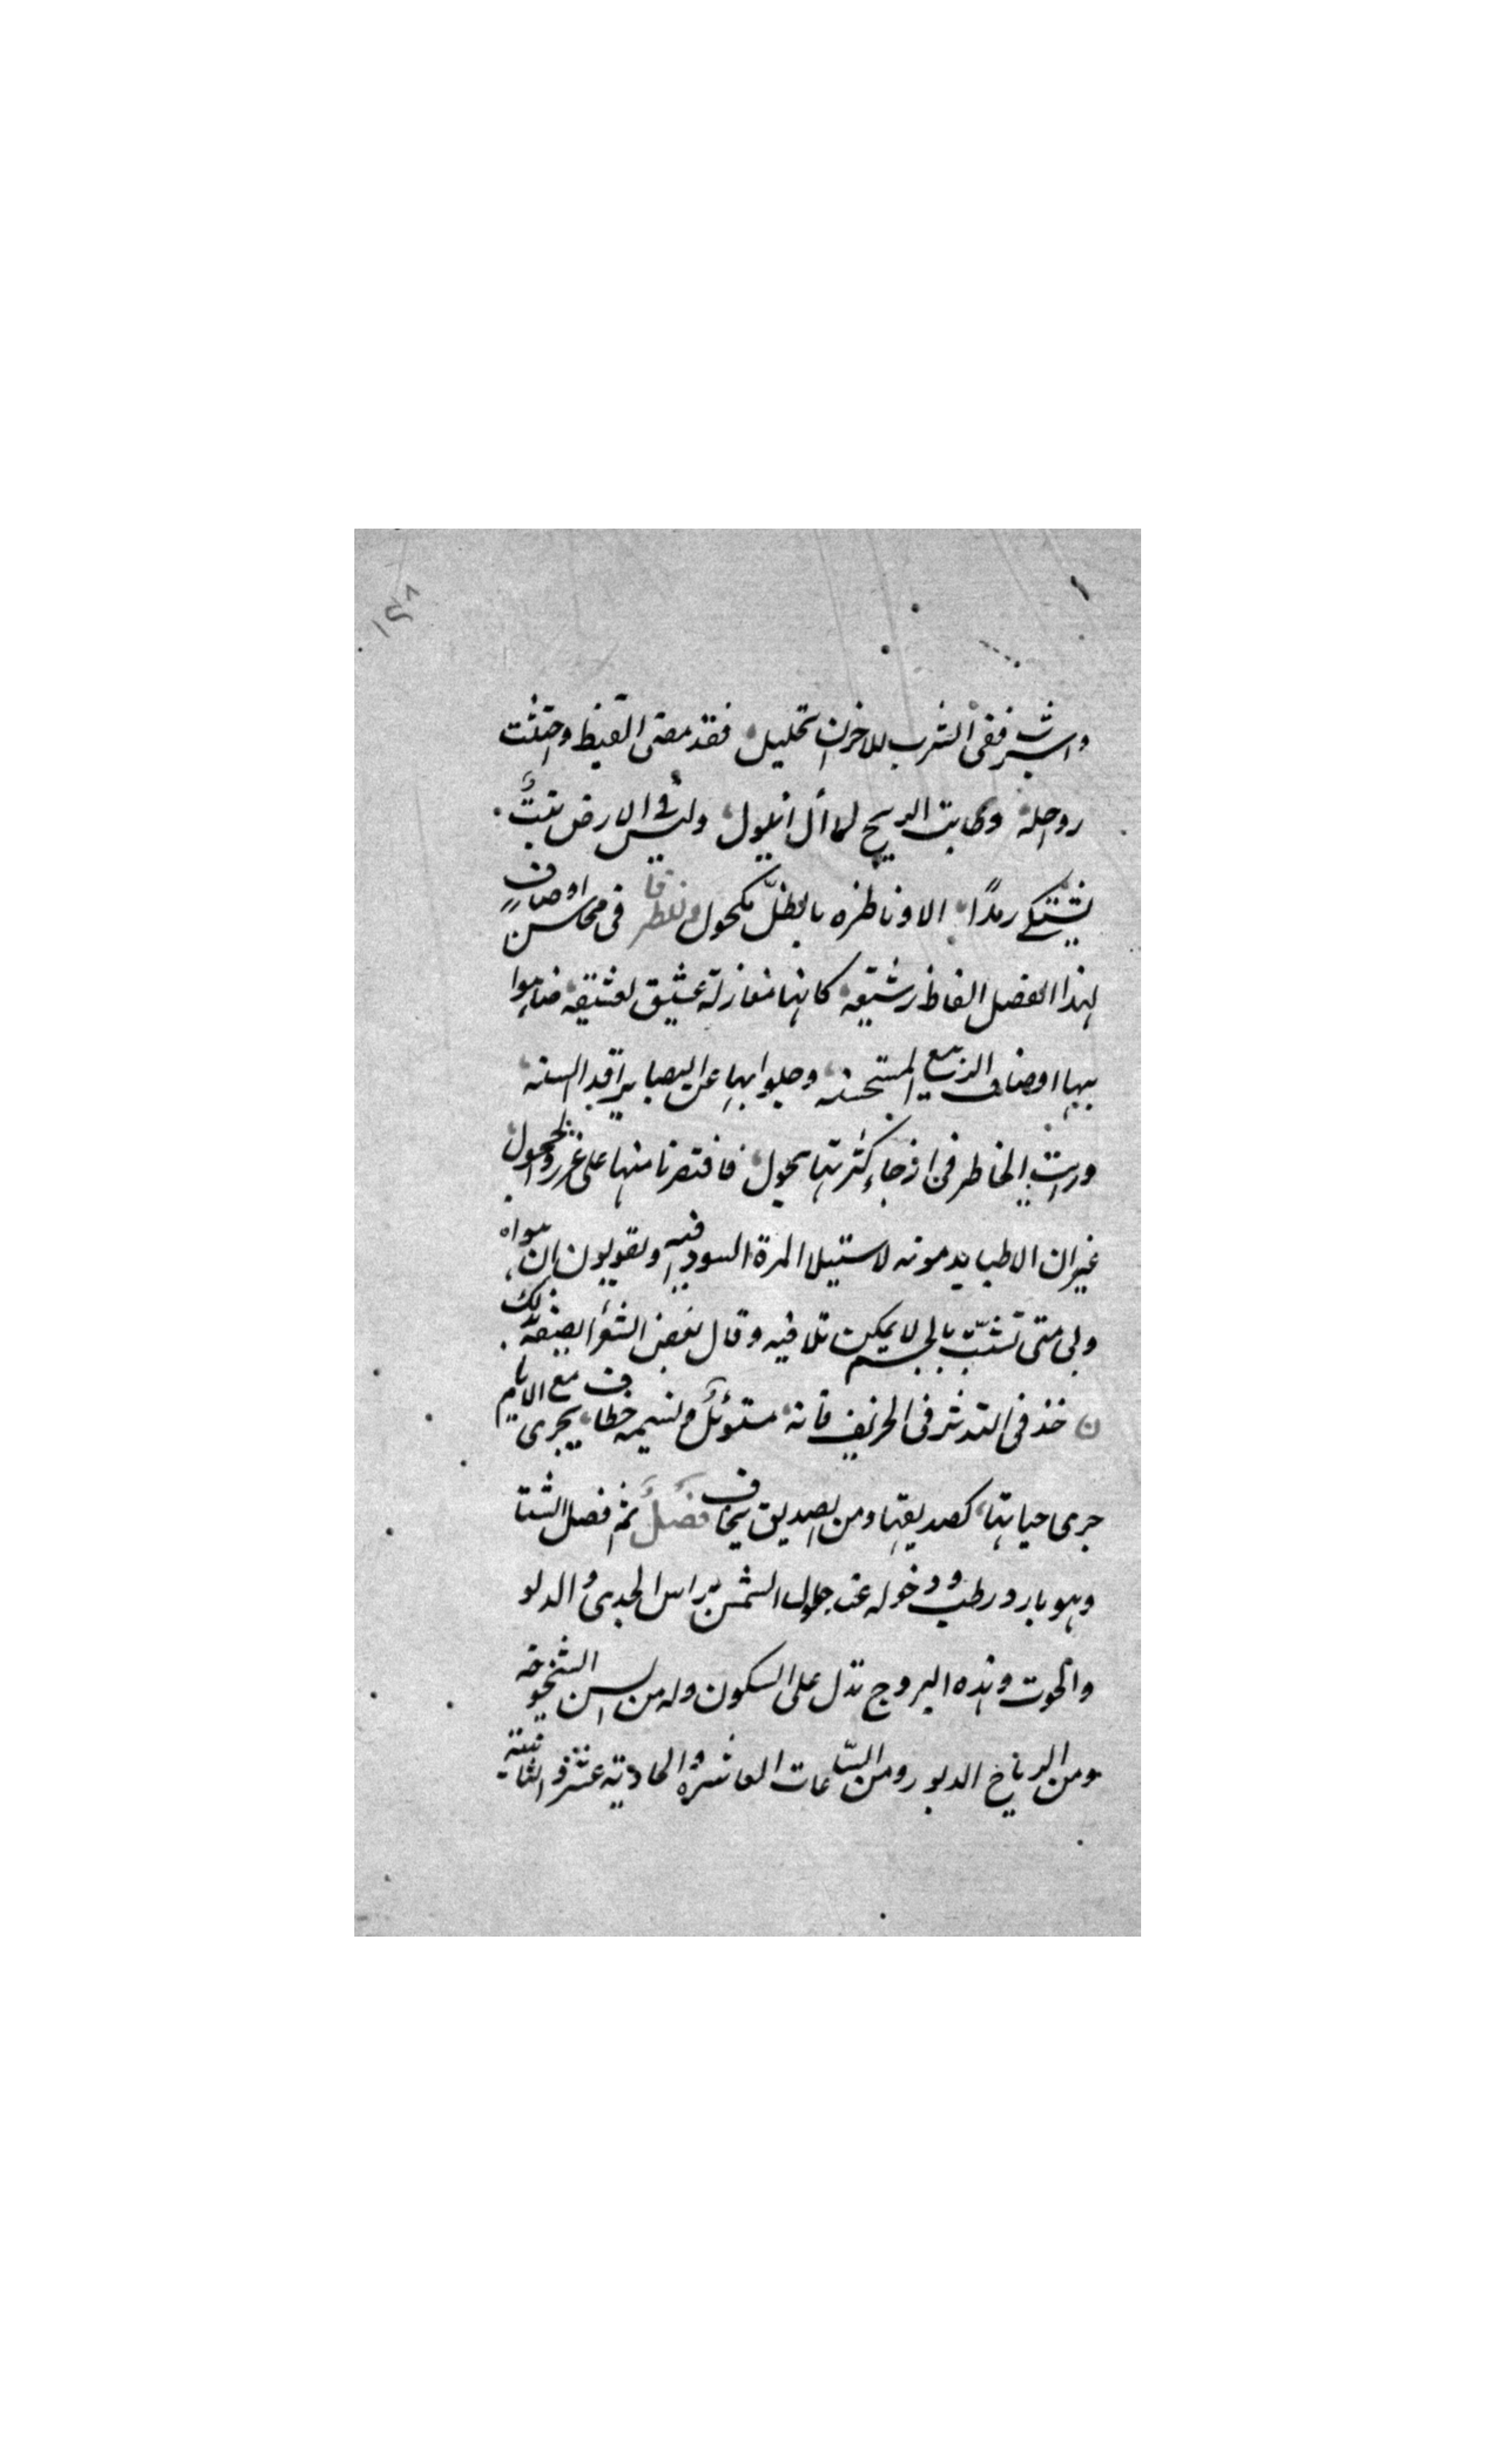 ١٢٨
واشرب ففى الشرب للاحزان تحليل فقد مضى القيظ واجتثت
رواحله وطابت الريح لما آل ايلول وليس فى الارض نبت
يشتكى رمدًا الا وناظره بالطل مكحول وللظرفا فى محاسن اوصاف
هذا الفصل الفاظ رشيقه كانها مغازلة عشيق لعشيقه ضاهوا
بها اوصاف الربيع المستحسنه وجلوا بها عن البصاير اقذا السنه
ورايت الخاطر فى ازجاء كثرتها يجول فاقتصرنا منها على غرر والحجول
غير ان الاطبا يذمونه لاستيلا المرة السودا فيه ويقولون ان هواه
ردى متى تشبث بالجسم لا يمكن تلافيه وقال بعض الشعرا يصفه بذلك
ن خذ فى التدثر فى الخريف فانه مستوبل ونسيمه خطاف يجرى مع الايام
جرى حياتها كصديقها ومن الصديق يخاف فصل ثم فصل الشتا
وهو بارد رطب ودخوله عند حلول الشمس براس الجدى والدلو
والحوت وهذه البروج تدل على السكون وله من السن الشيخوخه
ومن الرياح الدبور ومن الساعات العاشرة والحادية عشر والثانية